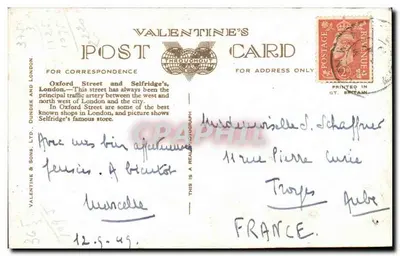 VALENTINE'S
POST CARD
THROUGHOUT
FOR CORRESPONDENCE
FOR ADDRESS ONLY
Oxford Street and Selfridge's,
London.—This street has always been the
principal traffic artery between the west and
north west of London and the city.
In Oxford Street are some of the best
known shops in London, and picture shows
Selfridge's famous store.
Avec mes bien affectueuses
pensées. A bientôt
Marcelle
12.9.49.
VALENTINE & SONS, LTD. DUNDEE AND LONDON
THIS IS A REAL PHOTOGRAPH
POSTAGE
REVENUE
PRINTED IN
GT. BRITAIN
Mademoiselle S. Schaffner
11 rue Pierre Curie
Troyes
Aube
FRANCE.